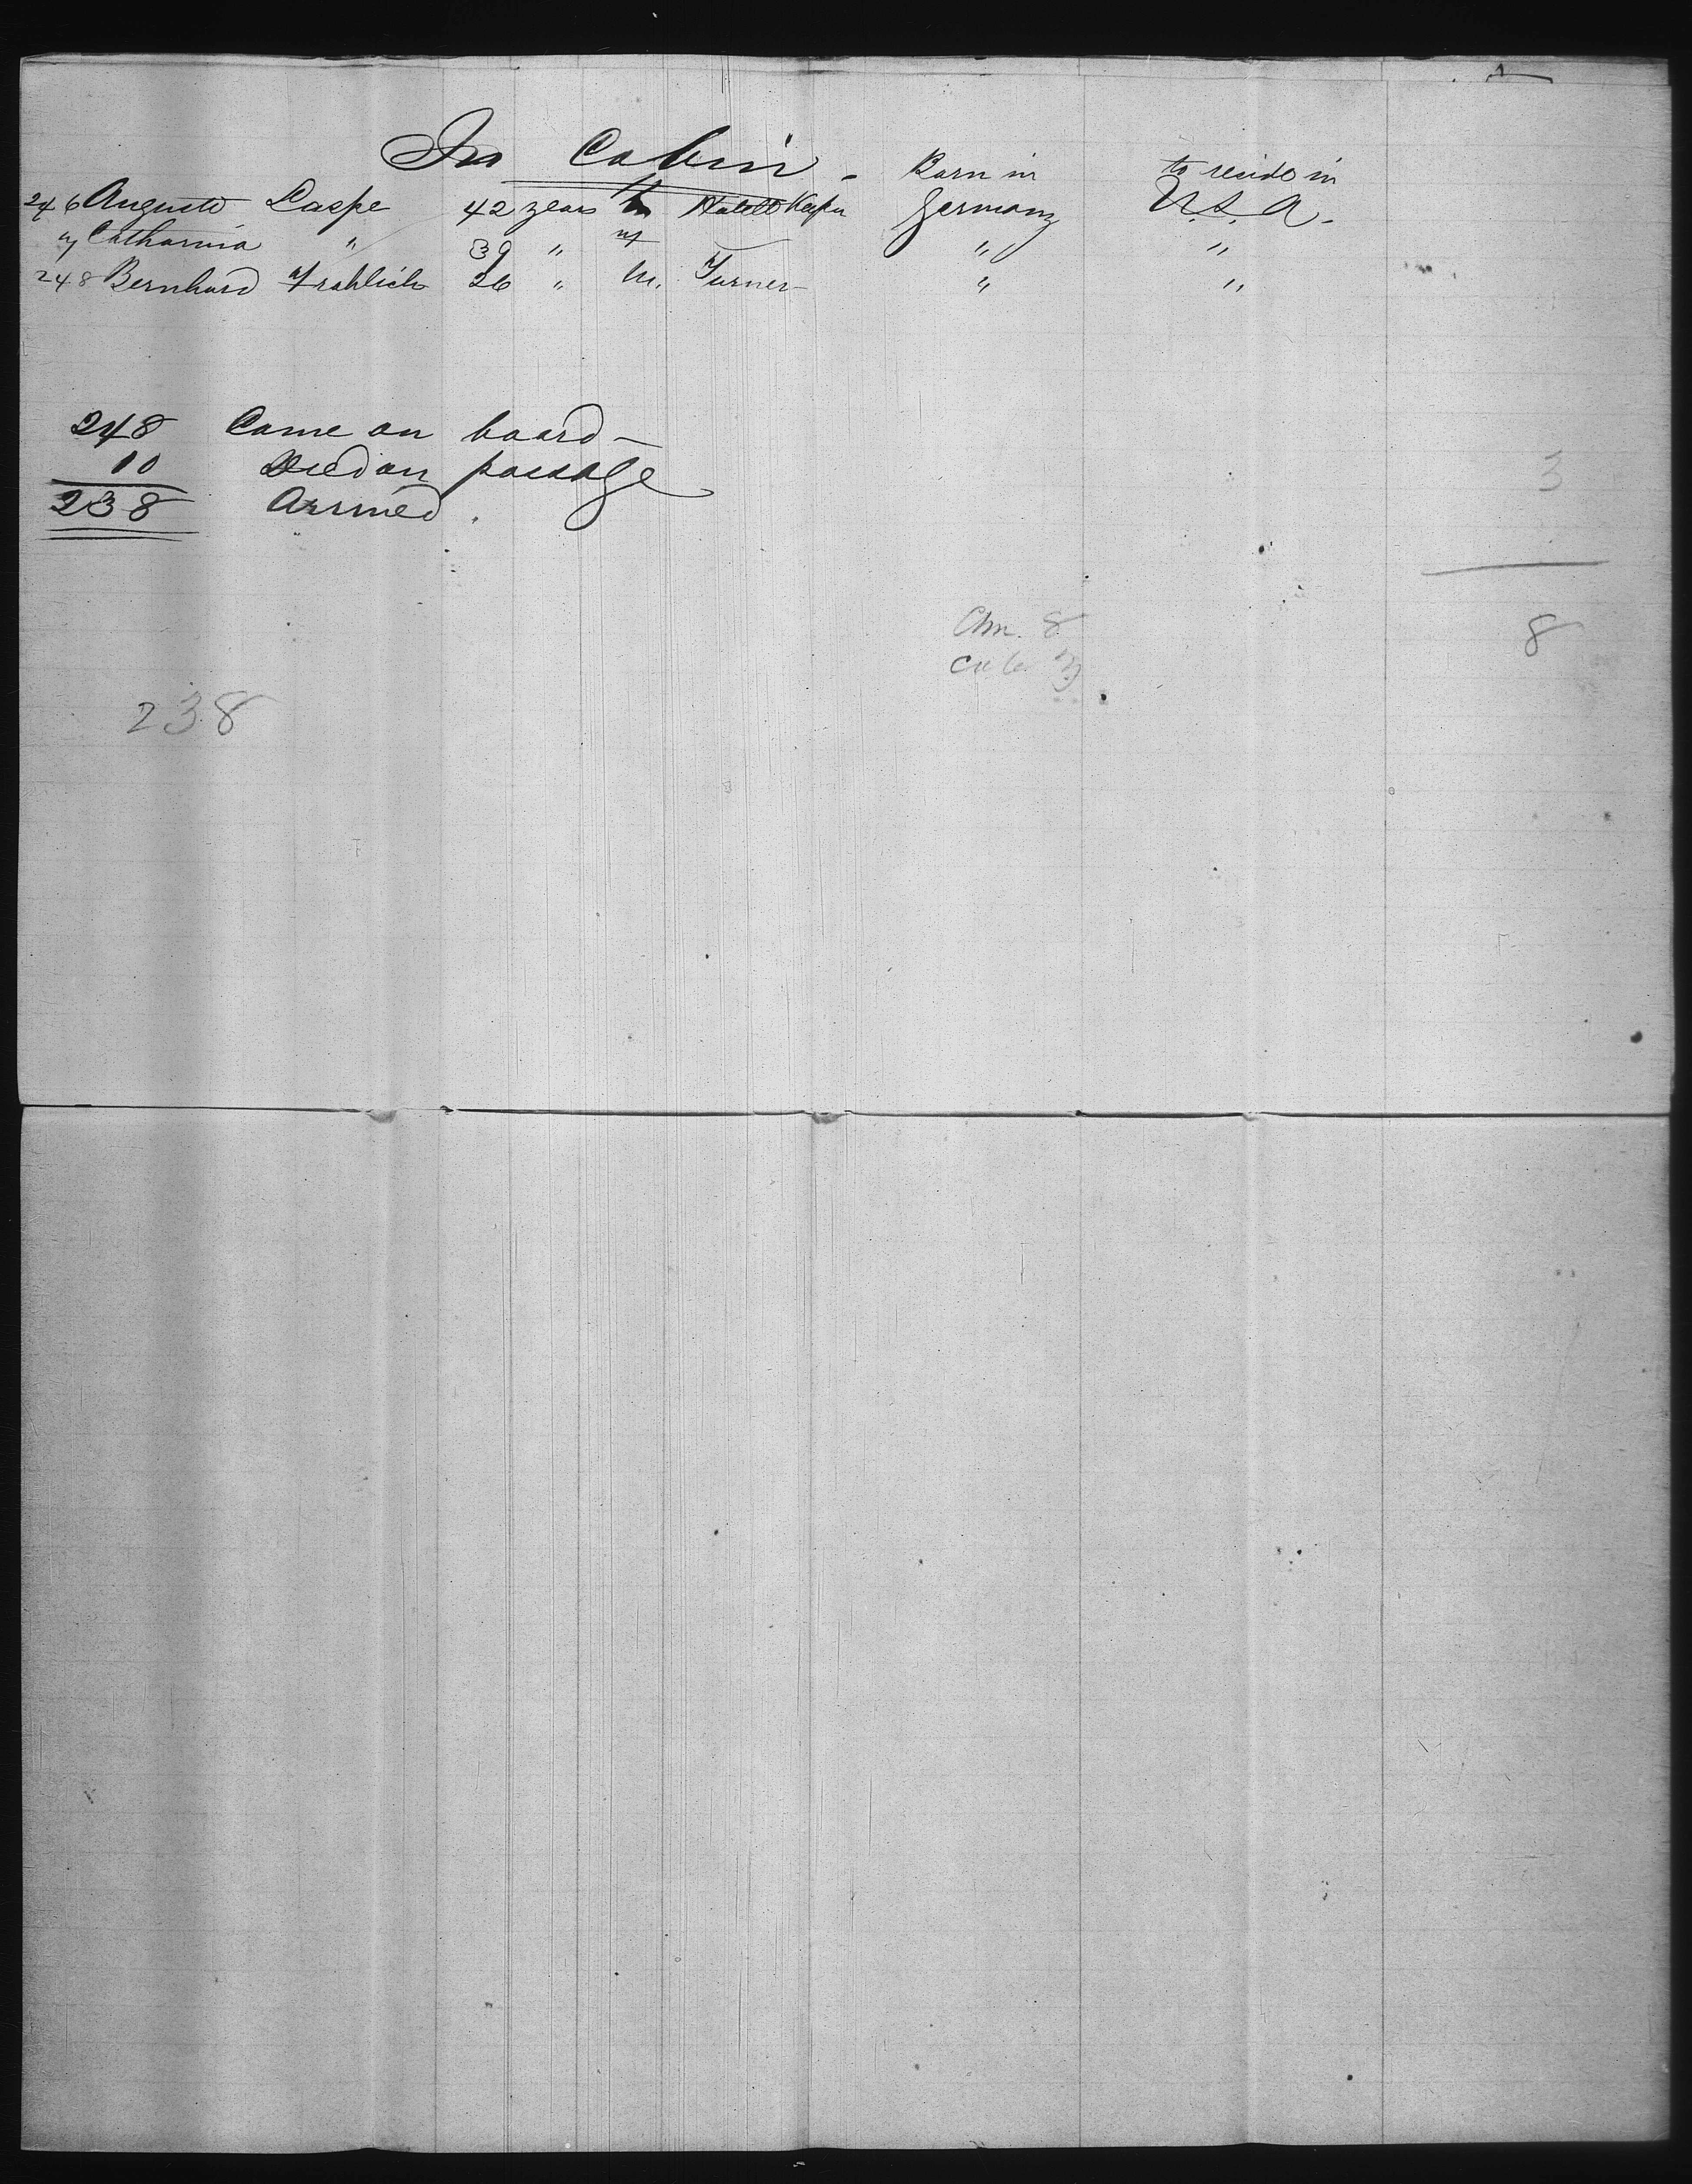 In Cabin. Born in to reside in
246 Auguste Laspe 42 years m Hotell Keeper Germany U.S.A.
"7 Catharina " 39 " wf " "
248 Bernhard Frohlich 26 " m. Turner " "
248 Came on board
10 Died on passage
238 Arrived.
3
Chn. 8
8
Cab. 3
238